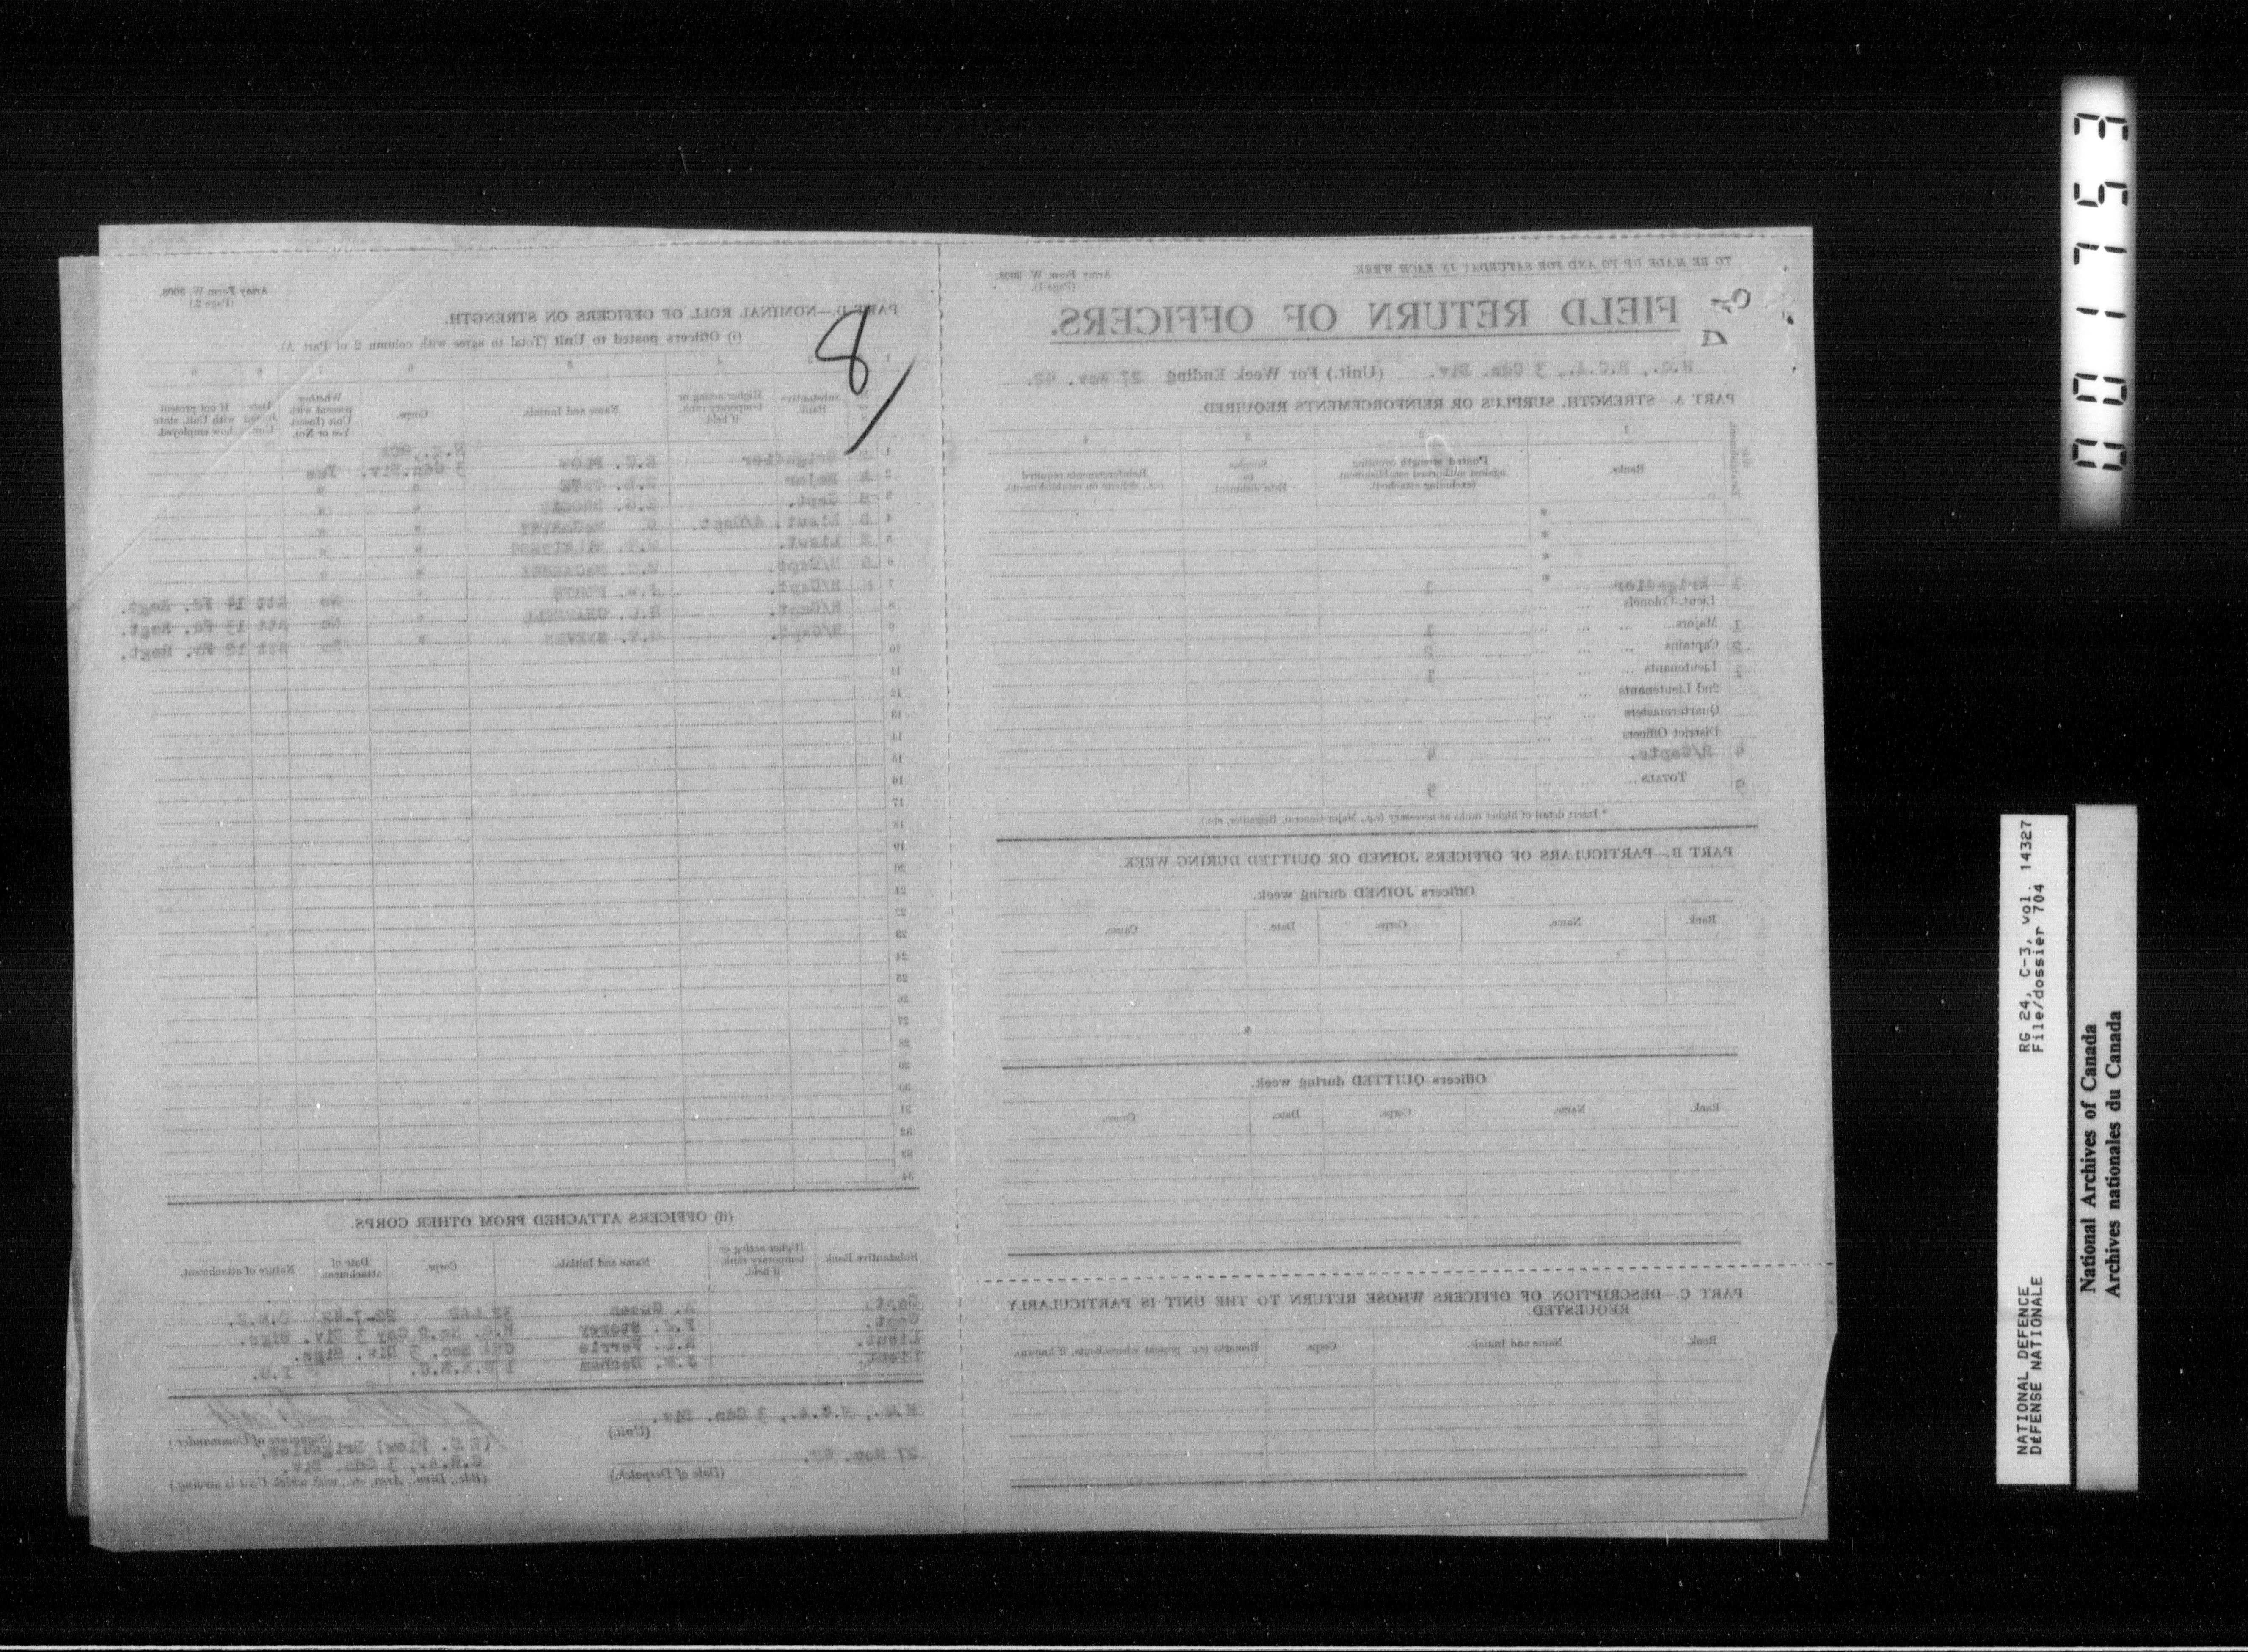 TO BE MADE UP TO AND FOR SATURDAY IN EACH WEEK.
Army Form W. 3008.
(Page 1).
FIELD RETURN OF OFFICERS.
H.Q., R.C.A., 3 Cdn. Div. (Unit.) For Week Ending 27 Nov. 42.
PART A.—STRENGTH, SURPLUS OR REINFORCEMENTS REQUIRED.
1 2 3 4
Ranks. Posted strength counting against authorised establishment (excluding attached). Surplus to Establishment. Reinforcements required (i.e., deficits on establishment).
*
*
*
*
1 Brigadier 1
Lieut.-Colonels
1 Majors 1
2 Captains 2
1 Lieutenants 1
2nd Lieutenants
Quartermasters
District Officers
4 H/Capts. 4
9 TOTALS 9
* Insert detail of higher ranks as necessary (e.g., Major-General, Brigadier, etc.).
PART B.—PARTICULARS OF OFFICERS JOINED OR QUITTED DURING WEEK.
Officers JOINED during week.
Rank. Name. Corps. Date. Cause.
Officers QUITTED during week.
Rank. Name. Corps. Date. Cause.
PART C.—DESCRIPTION OF OFFICERS WHOSE RETURN TO THE UNIT IS PARTICULARLY
REQUESTED.
Rank. Name and Initials. Corps. Remarks (e.g., present whereabouts, if known).
Army Form W. 3008.
(Page 2.)
PART D.—NOMINAL ROLL OF OFFICERS ON STRENGTH.
(i) Officers posted to Unit (Total to agree with column 2 of Part A).
8
Substantive Rank. Higher acting or temporary rank, if held. Name and Initials. Corps. Whether present with Unit (Insert Yes or No). Date Joined Unit. If not present with Unit, state how employed.
1 Brigadier E.C. PLOW 3 Cdn.Div. Yes
2 Major TATE " "
3 Capt. " "
4 Lieut. A/Capt. " "
5 Lieut. " "
6 H/Capt. " "
7 H/Capt. " No Att 14 Fd. Regt.
8 H/Capt. " No Att 13 Fd. Regt.
9 H/Capt. " No Att 12 Fd. Regt.
10
11
12
13
14
15
16
17
18
19
20
21
22
23
24
25
26
27
28
29
30
31
32
33
34
(ii) OFFICERS ATTACHED FROM OTHER CORPS.
Substantive Rank Higher acting or temporary rank, if held. Name and Initials. Corps. Date of attachment. Nature of attachment.
Capt. 22-7-42
Capt. F.J. Storey H.Q. No.2 Coy 3 Div. Sigs.
Lieut. Ferris Sec. 3 Div. Sigs.
Lieut. J.N. I.O.
H.Q., R.C.A., 3 Cdn. Div.
(Unit.)
(Signature of Commander.)
(E.C. Plow) Brigadier,
C.R.A., 3 Cdn. Div.
27 Nov. 42.
(Date of Despatch.)
(Bde., Divn., Area, etc., with which Unit is serving.)
0001753
NATIONAL DEFENCE RG 24, C-3, vol. 14327
DÉFENSE NATIONALE File/dossier 704
National Archives of Canada
Archives nationales du Canada